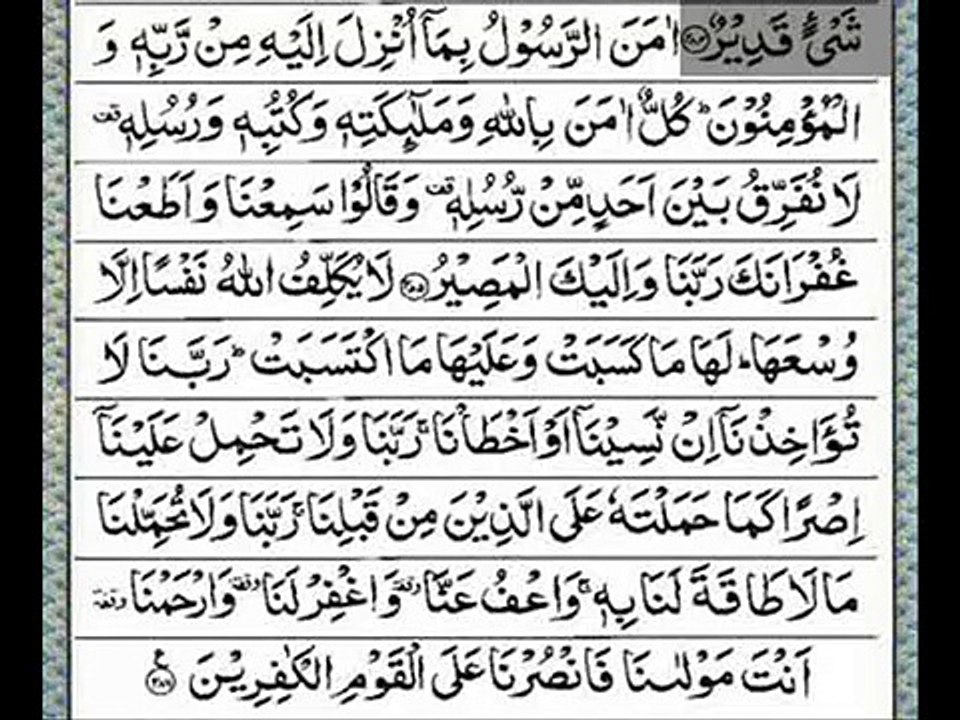 شَىْءٍ قَدِيْرٌ ﴿٢٨٤﴾ اٰمَنَ الرَّسُوْلُ بِمَاۤ اُنْزِلَ اِلَيْهِ مِنْ رَّبِّهٖ وَ
الْمُؤْمِنُوْنَ ؕ كُلٌّ اٰمَنَ بِاللّٰهِ وَمَلٰٓئِكَتِهٖ وَكُتُبِهٖ وَرُسُلِهٖ قف
لَا نُفَرِّقُ بَيْنَ اَحَدٍ مِّنْ رُّسُلِهٖ قف وَقَالُوْا سَمِعْنَا وَاَطَعْنَا
غُفْرَانَكَ رَبَّنَا وَاِلَيْكَ الْمَصِيْرُ ﴿٢٨٥﴾ لَا يُكَلِّفُ اللّٰهُ نَفْسًا اِلَّا
وُسْعَهَا ؕ لَهَا مَا كَسَبَتْ وَعَلَيْهَا مَا اكْتَسَبَتْ ؕ رَبَّنَا لَا
تُؤَاخِذْنَاۤ اِنْ نَّسِيْنَاۤ اَوْ اَخْطَاْنَا ۚ رَبَّنَا وَلَا تَحْمِلْ عَلَيْنَاۤ
اِصْرًا كَمَا حَمَلْتَهٗ عَلَى الَّذِيْنَ مِنْ قَبْلِنَا ۚ رَبَّنَا وَلَا تُحَمِّلْنَا
مَا لَا طَاقَةَ لَنَا بِهٖ ۚ وَاعْفُ عَنَّا وقفة وَاغْفِرْ لَنَا وقفة وَارْحَمْنَا وقفة
اَنْتَ مَوْلٰىنَا فَانْصُرْنَا عَلَى الْقَوْمِ الْكٰفِرِيْنَ ﴿٢٨٦﴾ ع